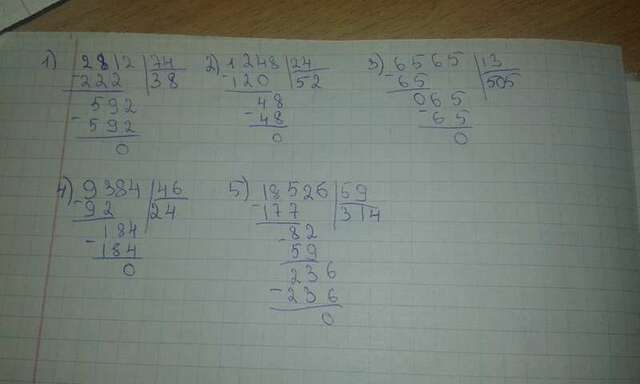 1) 2812 | 74
-222 | 38
592
-592
0
2) 1248 | 24
-120 | 52
48
-48
0
3) 6565 | 13
-65 | 505
065
-65
0
4) 9384 | 46
-92 | 24
184
-184
0
5) 18526 | 59
-177 | 314
-82
59
236
-236
0